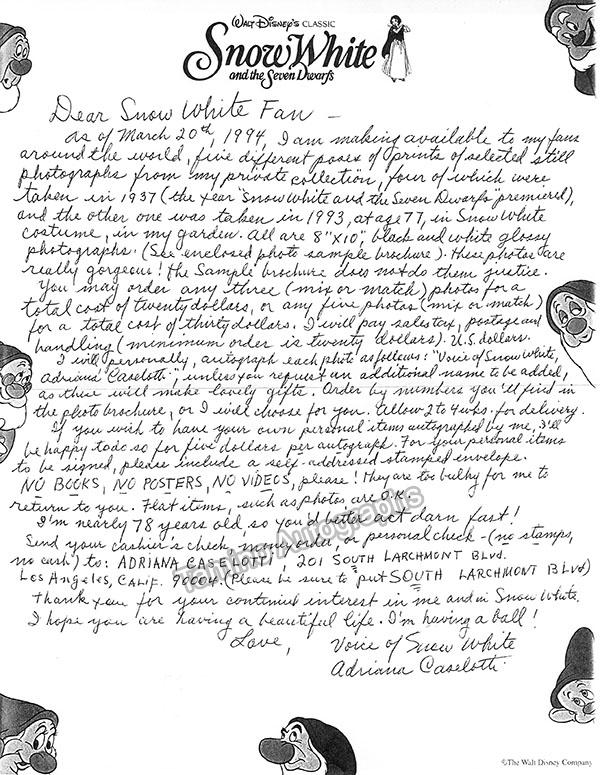 WALT DISNEY'S CLASSIC
Snow White
and the Seven Dwarfs
Dear Snow White Fan —
As of March 20th, 1994, I am making available to my fans
around the world, five different poses of prints of selected still
photographs from my private collection, four of which were
taken in 1937 (the year "Snow White and the Seven Dwarfs" premiered),
and the other one was taken in 1993, at age 77, in Snow White
costume, in my garden. All are 8"x10", black and white glossy
photographs. (See enclosed photo sample brochure). These photos are
really gorgeous! The sample brochure does not do them justice.
You may order any three (mix or match) photos for a
total cost of twenty dollars, or any five photos (mix or match)
for a total cost of thirty dollars. I will pay sales tax, postage and
handling (minimum order is twenty dollars). U.S. dollars.
I will personally, autograph each photo as follows: "Voice of Snow White,
Adriana Caselotti", unless you request an additional name to be added,
as these will make lovely gifts. Order by numbers you'll find in
the photo brochure, or I will choose for you. Allow 2 to 4 wks. for delivery.
If you wish to have your own personal items autographed by me, I'll
be happy to do so for five dollars per autograph. For your personal items
to be signed, please include a self-addressed stamped envelope.
NO BOOKS, NO POSTERS, NO VIDEOS, please! They are too bulky for me to
return to you. Flat items, such as photos are O.K.
I'm nearly 78 years old so you'd better act darn fast!
Send your cashier's check, money order, or personal check - (no stamps,
no cash) to: ADRIANA CASELOTTI, 201 SOUTH LARCHMONT BLVD.
LOS ANGELES, CALIF. 90004. (Please be sure to put SOUTH LARCHMONT BLVD)
Thank you for your continued interest in me and in Snow White.
I hope you are having a beautiful life. I'm having a ball!
Love, Voice of Snow White
Adriana Caselotti
©The Walt Disney Company
Tamino Autographs